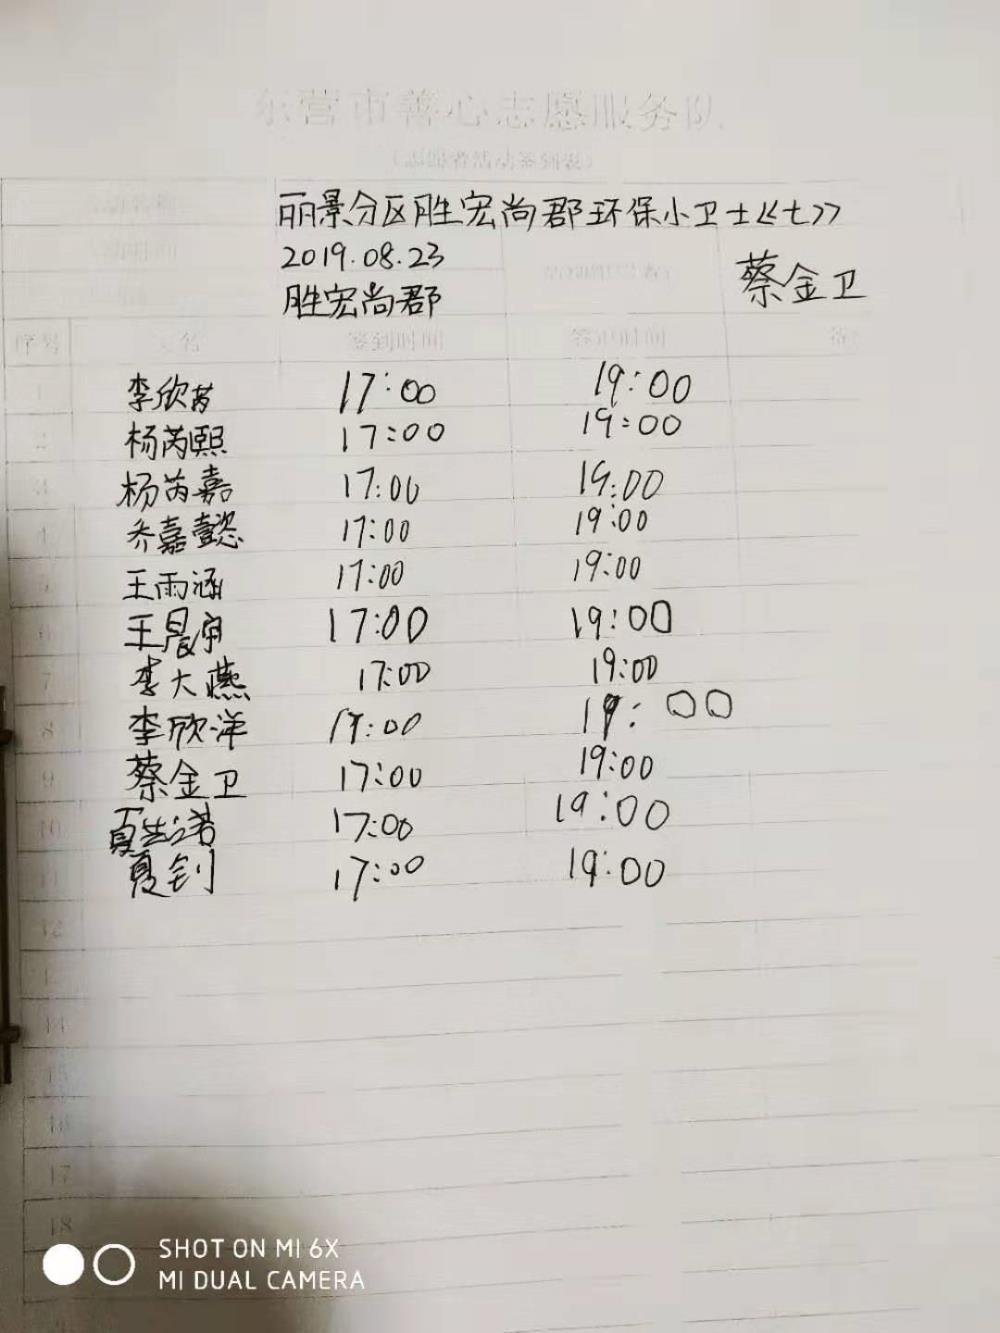 东营市善心志愿服务队
(志愿者活动签到表)
丽景分区胜宏尚郡环保小卫士《七》
2019.08.23
蔡金卫
胜宏尚郡
序号 签到时间 签退时间
1 李欣芮 17:00 19:00
2 杨芮熙 17:00 19:00
杨芮嘉 17:00 19:00
4 乔嘉懿 17:00 19:00
王雨涵 17:00 19:00
6 王晨 17:00 19:00
7 李大燕 17:00 19:00
8 李欣洋 17:00 19:00
9 蔡金卫 17:00 19:00
10 夏 诺 17:00 19:00
11 夏钊 17:00 19:00
12
14
15
16
17
18
SHOT ON MI 6X
MI DUAL CAMERA